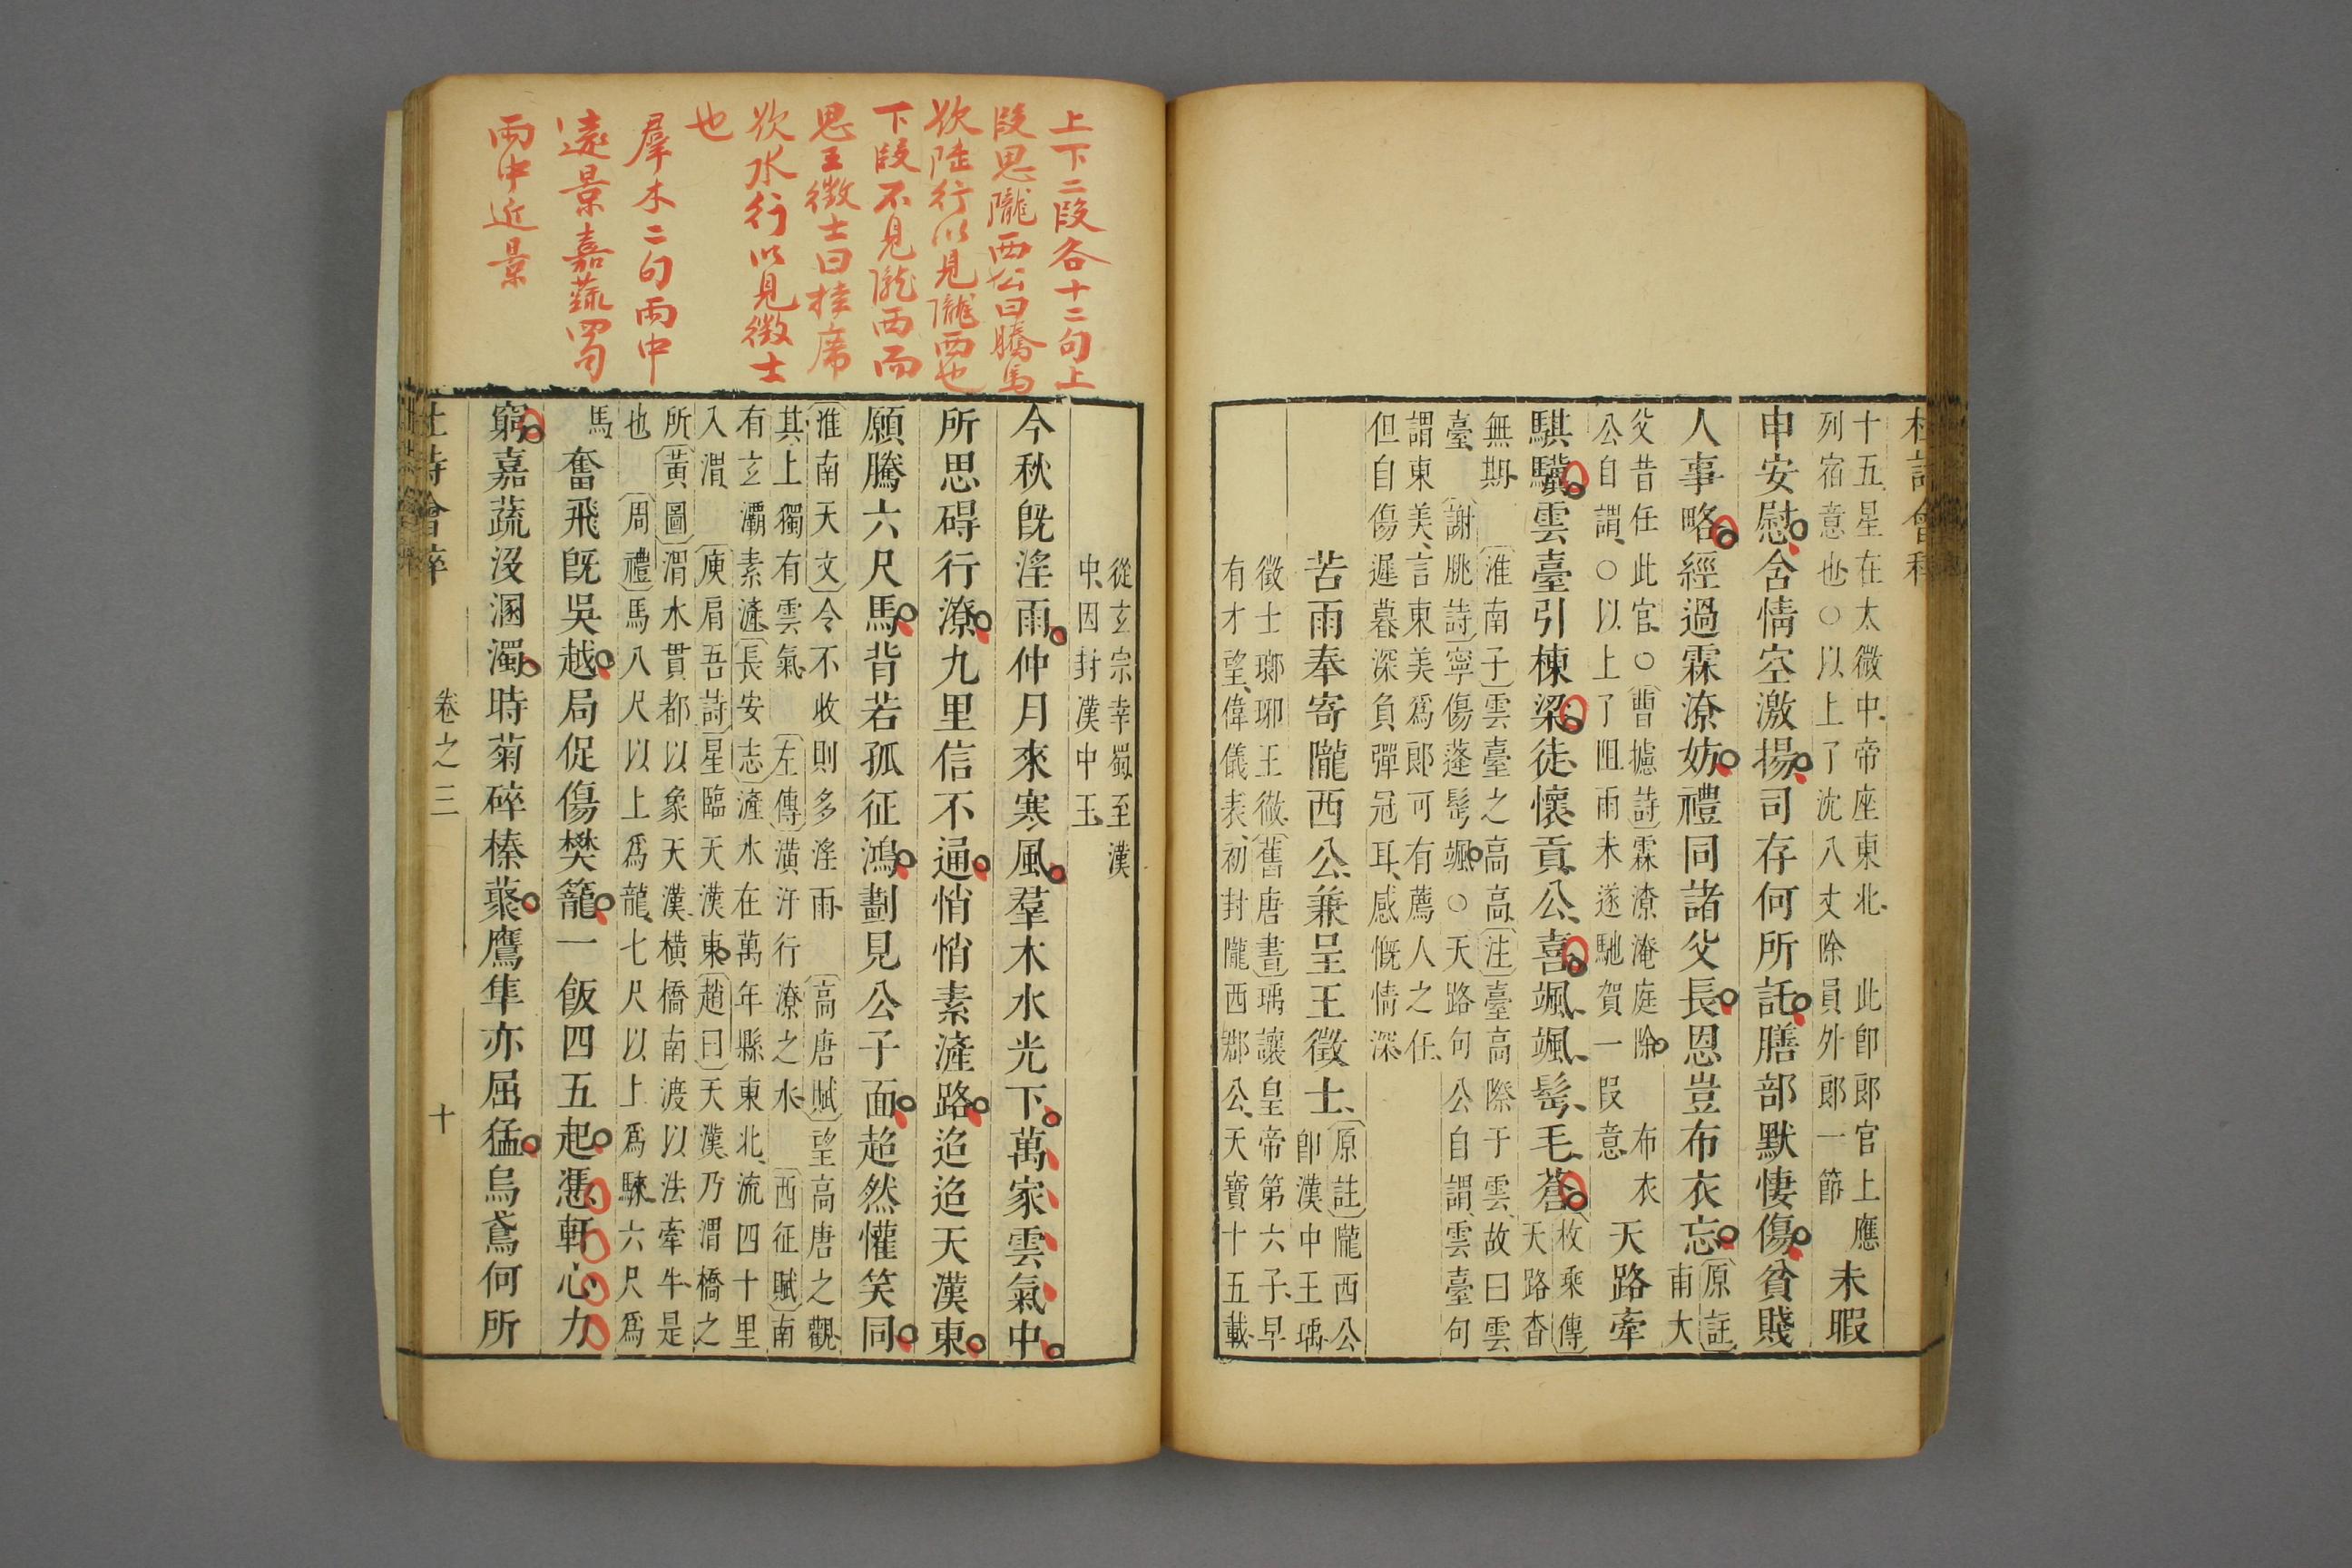 杜詩會稡
十五星在太微中帝座東北 此卽郎官上應
列宿意也○以上了沈八丈除員外郎一節
未暇
申安慰含情空激揚司存何所託膳部默悽傷貧賤
人事略經過霖潦妨禮同諸父長恩豈布衣忘
〔原註〕
甫大
父昔任此官○〔曹攄詩〕霖潦淹庭除 布衣
公自謂○以上了阻雨未遂馳賀一段意
天路牽
騏驥雲臺引棟梁徒懷貢公喜颯颯髩毛蒼
〔枚乘傳〕
天路杳
無期 〔淮南子〕雲臺之高高〔注〕臺高際于雲故曰雲
臺 〔謝朓詩〕寧傷蓬髩颯○天路句公自謂雲臺句
謂東美言東美爲郎可有薦人之任
但自傷遲暮深負彈冠耳感慨情深
苦雨奉寄隴西公兼呈王徵士
〔原註〕隴西公
卽漢中王瑀
徵士瑯琊王徹〔舊唐書〕瑀讓皇帝第六子早
有才望偉儀表初封隴西郡公天寶十五載
上下二段各十二句上
段思隴西公曰騰馬
欲陸行以見隴西也
下段不見隴西而
思王徵士曰挂席
欲水行以見徵士
也
羣木二句雨中
遠景嘉蔬四句
雨中近景
從玄宗幸蜀至漢
中因封漢中王
今秋旣淫雨仲月來寒風羣木水光下萬家雲氣中
所思碍行潦九里信不通悄悄素滻路迢迢天漢東
願騰六尺馬背若孤征鴻劃見公子面超然懽笑同
〔淮南天文〕令不收則多淫雨 〔高唐賦〕望高唐之觀
其上獨有雲氣 〔左傳〕潢汙行潦之水 〔西征賦〕南
有玄灞素滻〔長安志〕滻水在萬年縣東北流四十里
入渭 〔庾肩吾詩〕星臨天漢東〔趙曰〕天漢乃渭橋之
所〔黃圖〕渭水貫都以象天漢橫橋南渡以法牽牛是
也 〔周禮〕馬八尺以上爲龍七尺以上爲騋六尺爲
馬
奮飛旣吳越局促傷樊籠一飯四五起憑軒心力
窮嘉蔬沒溷濁時菊碎榛藂鷹隼亦屈猛烏鳶何所
杜詩會稡
卷之三
十